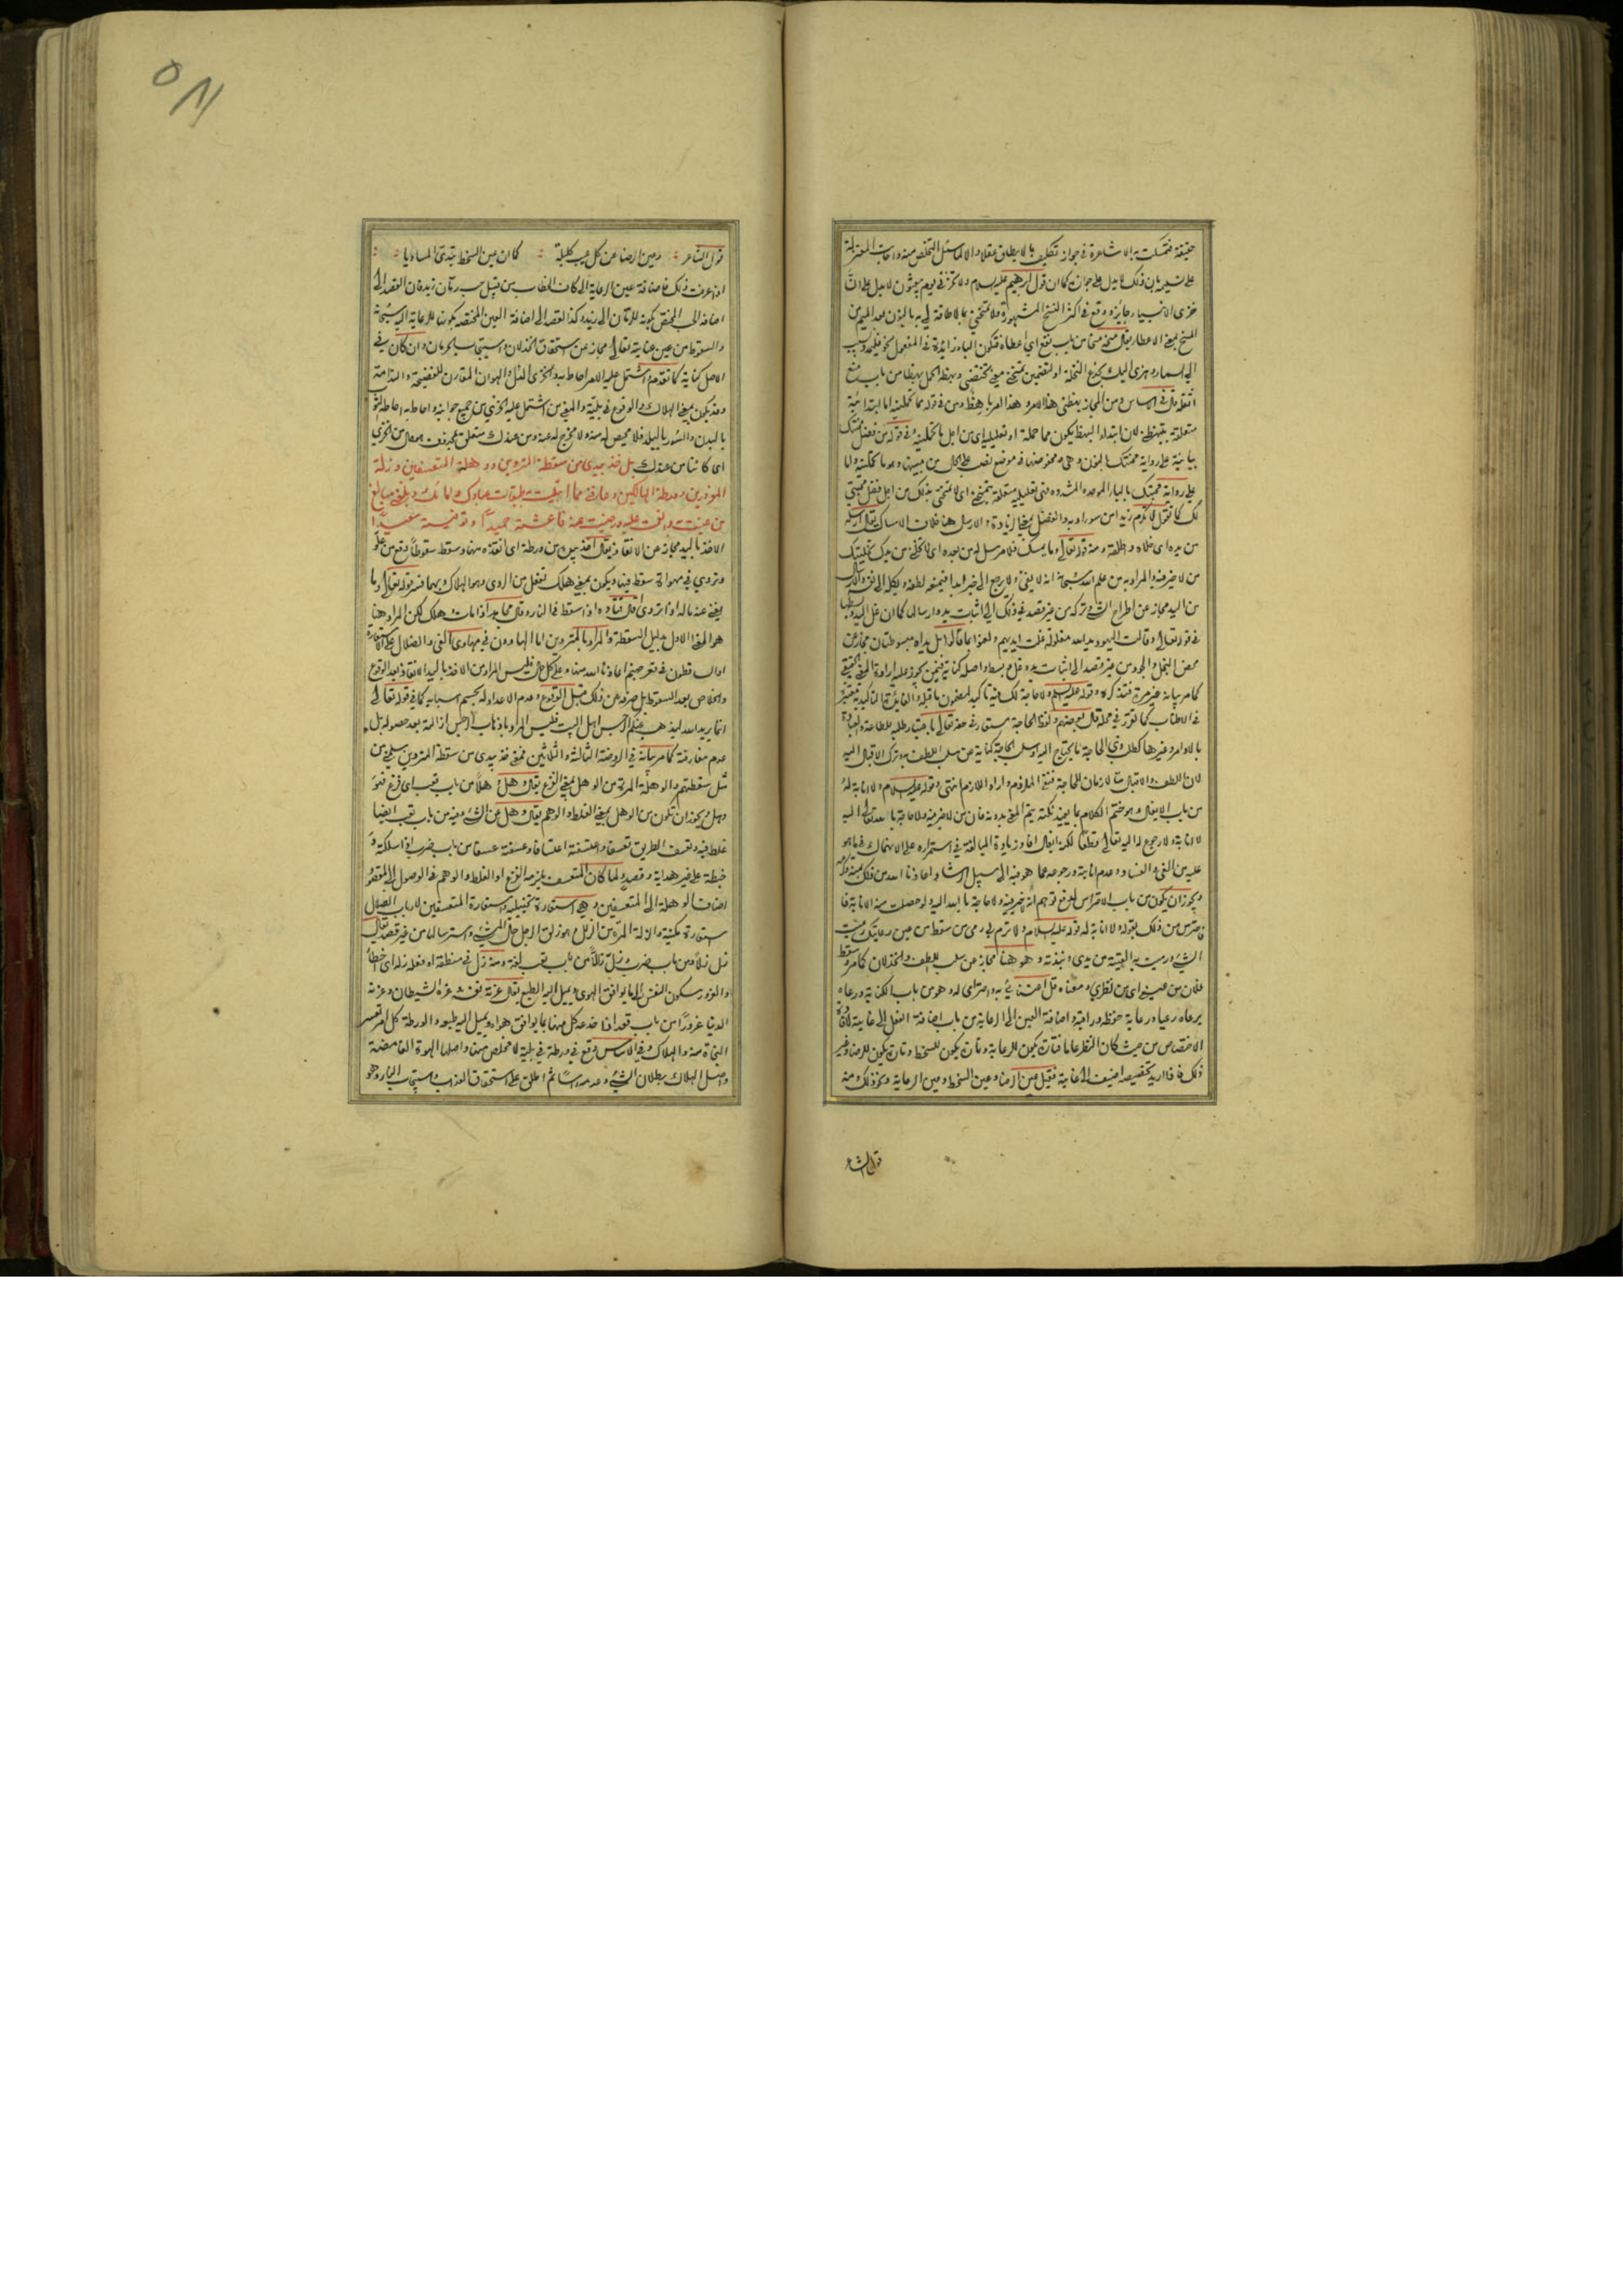 حقيقة فتمسكت به الاشاعرة فى جواز تكليف ما لا يطاق عقلا والا لما سئل التخلص منه واجاب المعتزلة
بان ذلك لا يدل على جوازه كما ان قول ابرهيم عليه السلام ولا تخزنى يوم يبعثون لا يدل على ان
خزى الانبياء جائز ووقع فى اكثر النسخ المشهورة ولا تمنحنى بما لا طاقة لى به بالنون بعد الميم من
المنح بمعنى الاعطاء يقال منحه منحا من باب نفع اى اعطاه فتكون الباء زائدة فى المفعول نحو فليمدد بسبب
الى السماء وهزى اليك بجذع النخلة او لتضمين تمنحنى معنى تخصنى وبهظه الحمل بهظا من باب منع
اثقله قال فى الاساس ومن المجاز بهظنى هذا الامر وهذا امر باهظ ومن فى قوله مما تحملنيه اما ابتدائية
متعلقة بتبهظنى لان ابتداء البهظ يكون مما حمله او تعليلية اى من اجل ما تحملنيه وفى قوله من فضل محنتك
بيانية على رواية تمنحنى بالنون وهى ومخفوضها فى موضع نصب على الحال من مبينها وهو ما تحملنيه واما
على رواية محبتك بالباء الموحدة المشددة فهى تعليلية متعلقة بتمنحنى اى لا تمنحنى بذلك من اجل فضل محبتى
لك كما تقول لا تحرم زيدا من سوء ادبه والفضل بمعنى الزيادة والارسال هنا خلاف الامساك يقال ارسله
من يده اى خلاه واطلقه ومنه قوله تعالى وما يمسك فلا مرسل له من بعده اى لا تخلنى من يدك تخليتك
من لا خير فيه والمراد به من علم الله سبحانه انه لا يفىء ولا يرجع الى خير ابدا فيمنعه لطفه ويكله الى نفسه والارسال
من اليد مجاز عن اطراح الشىء وتركه من غير قصد فى ذلك الى اثبات يد وارسال كما ان غل اليد وبسطها
فى قوله تعالى وقالت اليهود يد الله مغلولة غلت ايديهم ولعنوا بما قالوا بل يداه مبسوطتان مجاز عن
محض البخل والجود من غير قصد الى اثبات يد وغل او بسط واصله كناية فيمن يجوز عليه ارادة المعنى الحقيقى
كما مر بيانه غير مرة فتذكر وقوله عليه السلام ولا حاجة لك فيه تاكيد لمضمون ما قبله والفائدة التاكيدية تعتبر
فى الاطناب كما تقرر فى محله قال بعضهم ولفظ الحاجة مستعار فى حقه تعالى باعتبار طلبه للطاعة والعبادة
بالاوامر وغيرها كطلب ذى الحاجة ما يحتاج اليه او سلب الحاجة كناية عن سلب اللطف به وترك الاقبال اليه
لان اللطف والاقبال متلازمان للحاجة فنفى الملزوم واراد اللازم انتهى وقوله عليه السلام ولا انابة له
من باب الايغال وهو ختم الكلام بما يفيد نكتة يتم المعنى بدونها فان من لا خير فيه ولا حاجة بالله تعالى اليه
لا انابة ولا رجوع له اليه تعالى قطعا لكنه ايغال افاد زيادة المبالغة فى استمراره على الانهماك فيما هو
عليه من الغى والفساد وعدم انابته ورجوعه عما هو فيه الى سبيل الرشاد اعاذنا الله من ذلك بمنه وكرمه
ويجوز ان يكون من باب الاحتراس لدفع توهم انه لا خير فيه ولا حاجة بالله اليه ولو حصلت منه الانابة فا
حترس من ذلك بقوله ولا انابة له قوله عليه السلام ولا ترم بى رمى من سقط من عين رعايتك رميت
الشىء ورميت به القيته من يدى ونبذته وهو هنا مجاز عن سلب اللطف والخذلان كما مر وسقط
فلان من عينى اى من نظرى ومعناه قل اعتنائى به واحترامى له وهو من باب الكناية ورعاه
يرعاه رعيا ورعاية حفظه وراقبه واضافة العين الى الرعاية من باب اضافة الفعل الى غايته لافادة
الاختصاص من حيث كان النظر عاما فتارة يكون للرعاية وتارة يكون للسخط وتارة يكون للرضا وغير
ذلك فاذا اريد تخصيصه اضيف الى الغاية فقيل عين الرضا وعين السخط وعين الرعاية ونحو ذلك ومنه
قول الشاعر
قول الشاعر وعين الرضا عن كل عيب كليلة كما ان عين السخط تبدى المساويا
اذا عرفت ذلك فاضافة عين الرعاية الى كاف الخطاب من قبيل حب رمان زيد فان القصد الى
اضافة الحب المختص بكونه للرمان الى زيد وكذا القصد الى اضافة العين المختصة بكونها للرعاية اليه سبحانه
والسقوط من عين عنايته تعالى مجاز عن استحقاق الخذلان واستيجاب الحرمان وان كان فى
الاصل كناية كما تقدم واشتمل عليه الامر احاط به والخزى الذل والهوان المقارن للفضيحة والندامة
وقد يكون بمعنى الهلاك والوقوع فى بلية والمعنى من اشتمل عليه الخزى من جميع جوانبه واحاط به احاطة الثوب
بالبدن والسور بالبلد فلا محيص له منه ولا مخرج له عنه ومن عندك متعلق بمحذوف حال من الخزى
اى كائنا من عندك بل خذ بيدى من سقطة المتردين ووهلة المتعسفين وزلة
المغرورين وورطة الهالكين وعافنى مما ابتليت به طبقات عبيدك وامائك وبلغنى مبالغ
من عنيت به وانعمت عليه ورضيت عنه فاعشته حميدا وتوفيته سعيدا
الاخذ باليد مجاز عن الانقاذ يقال اخذ بيده من ورطة اى انقذه منها وسقط سقوطا وقع من علو
وتردى فى مهواة سقط فيها ويكون بمعنى هلك تفعل من الردى وهو الهلاك وبهما فسر قوله تعالى وما
يغنى عنه ماله اذا تردى قال قتادة اذا سقط فى النار وقال مجاهد اذا مات وهلك لكن المراد هنا
هو المعنى الاول بدليل السقطة والمراد بالمتردين اما الهاوون فى مهاوى الغى والضلال على الاستعارة
او الساقطون فى قعر جهنم اعاذنا الله منها وعلى كل حال فليس المراد من الاخذ باليد الانقاذ بعد الوقوع
والخلاص بعد السقوط بل صرفه عن ذلك قبل الوقوع وعدم الاعداد له بحسم اسبابه كما فى قوله تعالى
انما يريد الله ليذهب عنكم الرجس اهل البيت فليس المراد باذهاب الرجس ازالته بعد حصوله بل
عدم مقارفته كما مر بيانه فى الروضة الثالثة والثلاثين فمعنى خذ بيدى من سقطة المتردين سلمنى من
مثل سقطتهم والوهلة المرة من الوهل بمعنى الفزع يقال وهل وهلا من باب تعب اى فزع فهو
وهل ويجوز ان تكون من الوهل بمعنى الغلط والوهم يقال وهل عن الشىء وفيه من باب تعب ايضا
غلط فيه وتعسف الطريق تعسفا واعتسفه اعتسافا وعسفه عسفا من باب ضرب اذا سلكه و
خبطه على غير هداية وقصد ولما كان المتعسف يلزمه الفزع او الغلط والوهم فى الوصول الى المقصود
اضاف الوهلة الى المتعسفين وهى استعارة تخييلية واستعارة المتعسفين لارباب الضلال
استعارة مكنية والزلة المرة من الزلل وهو زلق الرجل حال المشى واسترسالها من غير قصد يقال
زل زلا من باب ضرب وزل زللا من باب تعب لغة ومنه زل فى منطقه او فعله زلة اى اخطأ
والغرور سكون النفس الى ما يوافق الهوى ويميل اليه الطبع يقال غرته نفسه وغره الشيطان وغرته
الدنيا غرورا من باب قعد اذا خدعه كل منها بما يوافق هواه ويميل اليه طبعه والورطة كل امر تعسر
النجاة منه والهلاك وفى الاساس وقع فى ورطة فى بلية لا مخلص منها واصلها الهوة الغامضة
واصل الهلاك بطلان الشىء وعدمه راسا ثم اطلق على استحقاق العذاب واستيجاب النار وهو